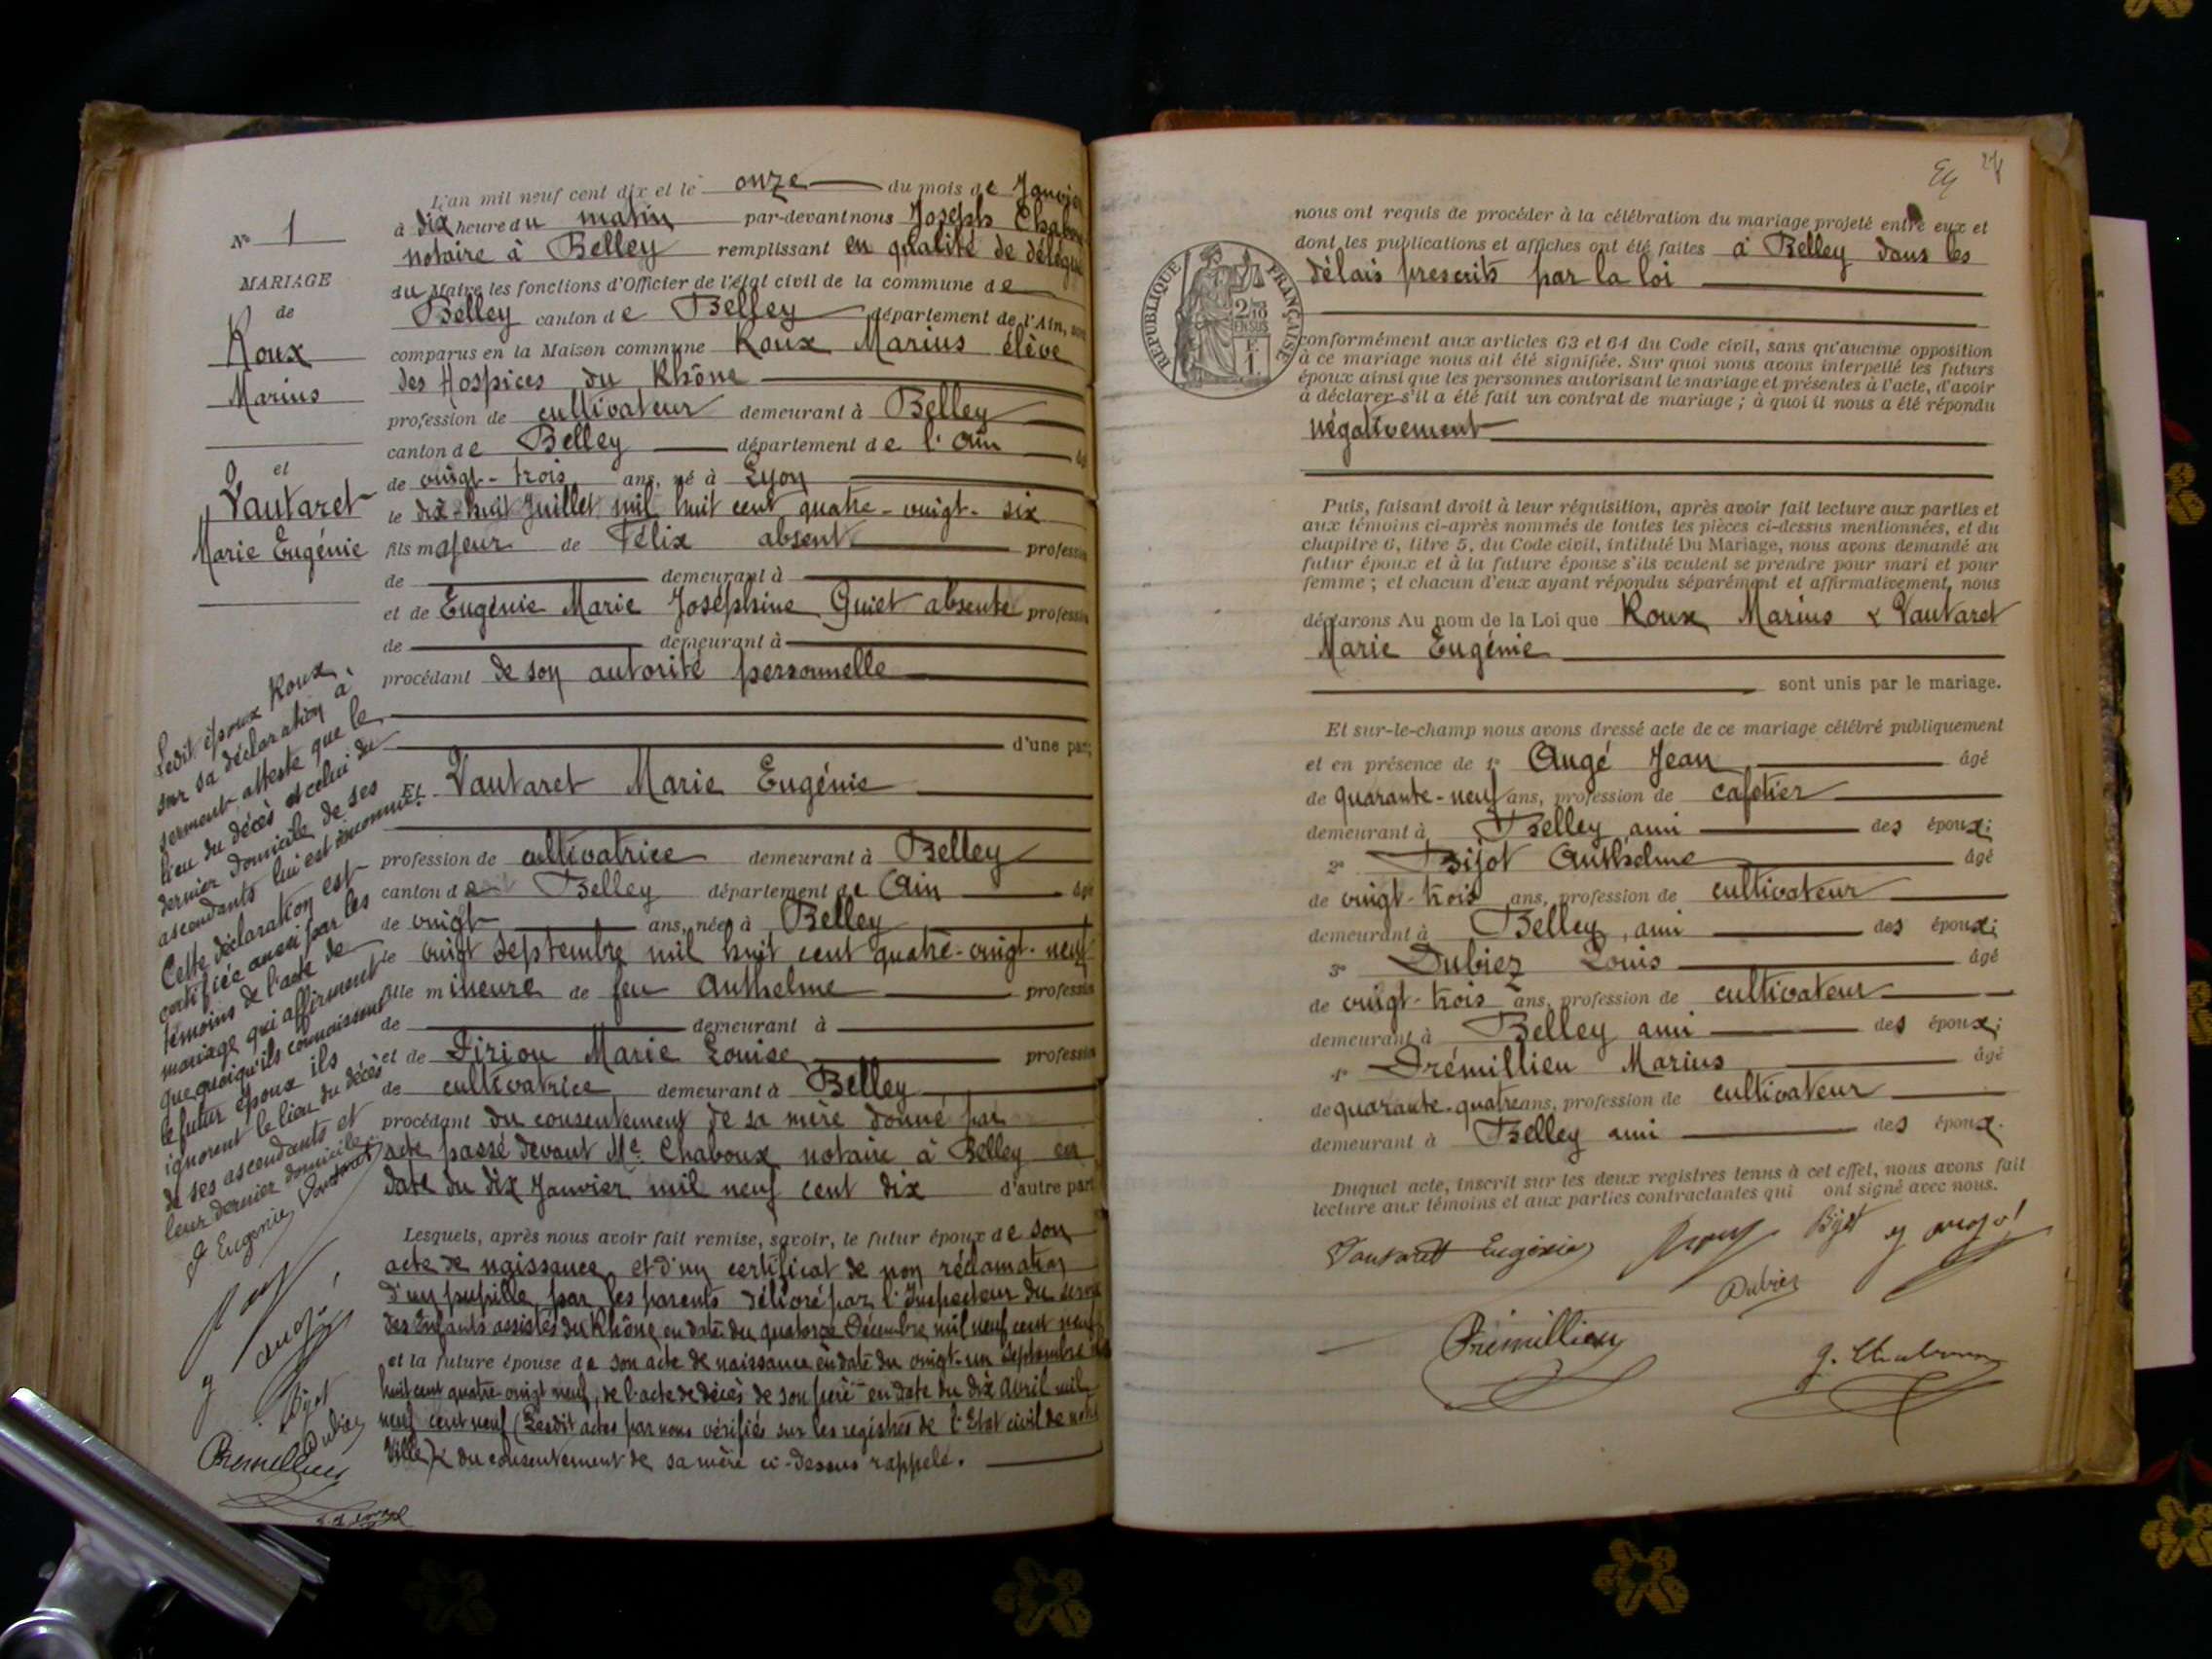 L'an mil neuf cent dix et le onze du mois de Janvier
à dix heure du matin par-devant nous Joseph Chaboux
notaire à Belley remplissant en qualité de délégué
du Maire les fonctions d'Officier de l'état civil de la commune de
Belley canton de Belley département de l'Ain, sont
comparus en la Maison commune Roux Marius élève
des Hospices du Rhône
profession de cultivateur demeurant à Belley
canton de Belley département de l'Ain âgé
de vingt-trois ans, né à Lyon
le dix-huit Juillet mil huit cent quatre-vingt-six
fils majeur de Félix absent profession
de demeurant à
et de Eugénie Marie Joséphine Guiet absente profession
de demeurant à
procédant de son autorité personnelle
d'une part;
Et Vautaret Marie Eugénie
profession de cultivatrice demeurant à Belley
canton de Belley département de Ain âgé
de vingt ans, née à Belley
le vingt Septembre mil huit cent quatre-vingt-neuf
fille mineure de feu Anthelme profession
de demeurant à
et de Marie Louise profession
de cultivatrice demeurant à Belley
procédant du consentement de sa mère donné par
acte passé devant Me Chaboux notaire à Belley en
date du dix Janvier mil neuf cent dix d'autre part
Lesquels, après nous avoir fait remise, savoir, le futur époux de son
acte de naissance et d'un certificat de non réclamation
d'un pupille par les parents délivré par l'Inspecteur du service
des Enfants assistés du Rhône en date du quatorze Décembre mil neuf cent neuf
et la future épouse de son acte de naissance en date du vingt-un Septembre mil
huit cent quatre-vingt neuf, de l'acte de décès de son père en date du dix Avril mil
neuf cent neuf (Lesdit actes par nous vérifiés sur les registres de l'Etat civil de notre
Ville) & du consentement de sa mère ci-dessus rappelé.
No 1
MARIAGE
de
Roux
Marius
et
Vautaret
Marie Eugénie
Ledit époux Roux,
sur sa déclaration à
serment atteste que le
lieu du décès et celui du
dernier domicile de ses
ascendants lui est inconnu.
Cette déclaration est
certifiée aussi par les
témoins de l'acte de
mariage qui affirment
que quoiqu'ils connaissent
le futur époux ils
ignorent le lieu du décès
de ses ascendants et
leur dernier domicile.
Eugénie Vautaret
Roux
augé
Bijot
Dubiez
Prémillieu
24
nous ont requis de procéder à la célébration du mariage projeté entre eux et
dont les publications et affiches ont été faites à Belley dans les
délais prescrits par la loi
RÉPUBLIQUE FRANÇAISE
2/10
EN SUS
F.
1.
conformément aux articles 63 et 64 du Code civil, sans qu'aucune opposition
à ce mariage nous ait été signifiée. Sur quoi nous avons interpellé les futurs
époux ainsi que les personnes autorisant le mariage et présentes à l'acte, d'avoir
à déclarer s'il a été fait un contrat de mariage ; à quoi il nous a été répondu
négativement
Puis, faisant droit à leur réquisition, après avoir fait lecture aux parties et
aux témoins ci-après nommés de toutes les pièces ci-dessus mentionnées, et du
chapitre 6, titre 5, du Code civil, intitulé Du Mariage, nous avons demandé au
futur époux et à la future épouse s'ils veulent se prendre pour mari et pour
femme ; et chacun d'eux ayant répondu séparément et affirmativement, nous
déclarons Au nom de la Loi que Roux Marius & Vautaret
Marie Eugénie
sont unis par le mariage.
Et sur-le-champ nous avons dressé acte de ce mariage célébré publiquement
et en présence de 1° Augé Jean âgé
de quarante-neuf ans, profession de cafetier
demeurant à Belley ami des époux;
2° Bijot Anthelme âgé
de vingt-trois ans, profession de cultivateur
demeurant à Belley, ami des époux;
3° Dubiez Louis âgé
de vingt-trois ans, profession de cultivateur
demeurant à Belley ami des époux;
4° Prémillieu Marius âgé
de quarante-quatre ans, profession de cultivateur
demeurant à Belley ami des époux.
Duquel acte, inscrit sur les deux registres tenus à cet effet, nous avons fait
lecture aux témoins et aux parties contractantes qui ont signé avec nous.
Vautaret Eugénie Roux Bijot J augé
Dubiez
Prémillieu J. Chaboux